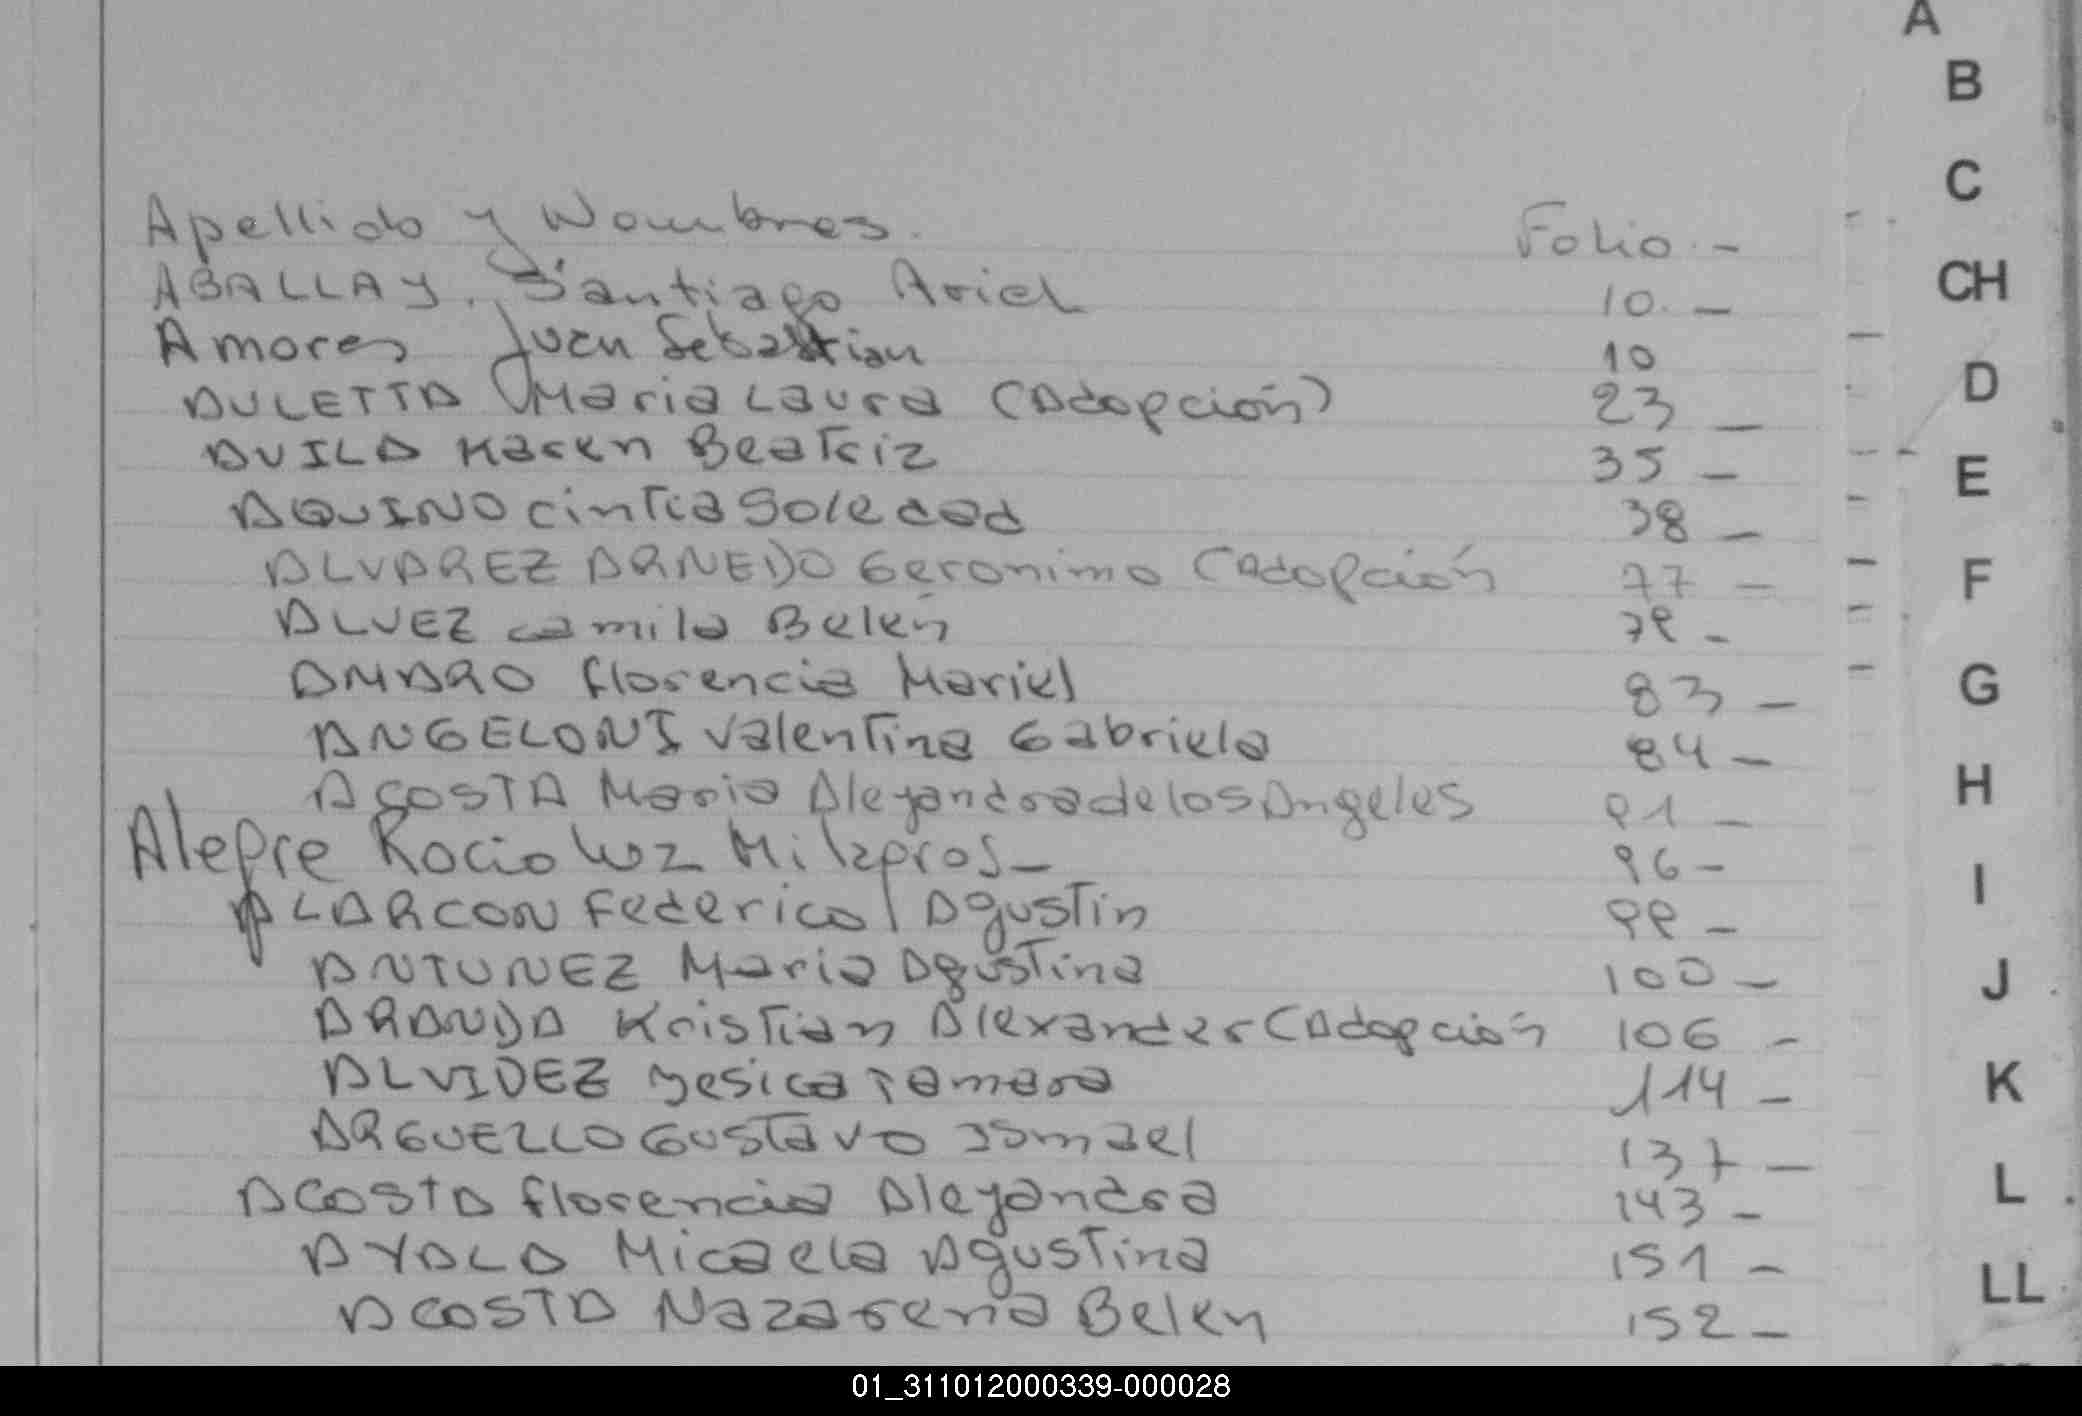 A
B
C
CH
D
E
F
G
H
I
J
K
L
LL
Apellido y Nombres. Folio. -
ABALLAY. Santiago Ariel 10. -
Amores Juan Sebastian 10
AULETTA Maria Laura (Adopción) 23 -
AVILA Karen Beatriz 35 -
AQUINO Cintia Soledad 38 -
ALVAREZ ARNEDO Geronimo (Adopción 77 -
ALVEZ camila Belén 79 -
AMARO florencia Mariel 83 -
ANGELONI Valentina Gabriela 84 -
ACOSTA Maria Aleyandra de los Angeles 91 -
Alegre Rocio Luz Milagros - 96 -
ALARCON Federico Agustin 99 -
ANTUNEZ Maria Agustina 100 -
ARANDA Kristian Alexander (Adopción 106 -
ALVIDEZ Yesica Tamara 114 -
ARGUELLO Gustavo Ismael 137 -
ACOSTA florencia Aleyandra 143 -
AYALA Micaela Agustina 151 -
ACOSTA Nazarena Belen 152 -
01_311012000339-000028